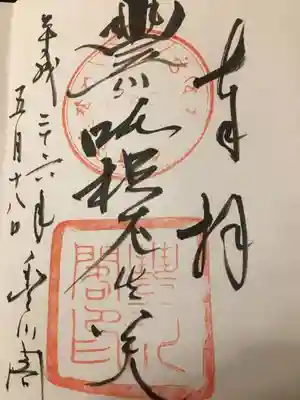 奉拝
豐川吒枳尼真天
平成二十六年
五月十八日
豊川閣
豐川閣印